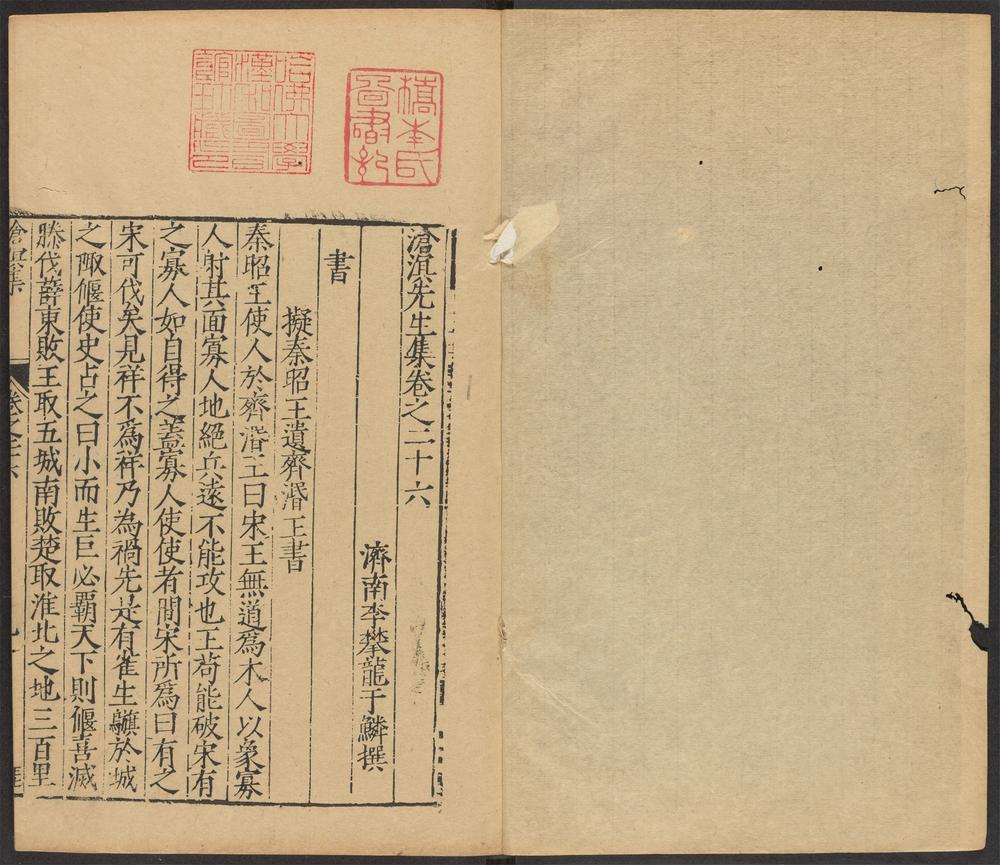 滄溟先生集卷之二十六
濟南李攀龍于鱗撰
書
擬秦昭王遺齊湣王書
秦昭王使人於齊湣王曰宋王無道爲木人以象寡
人射其面寡人地絕兵遠不能攻也王苟能破宋有
之寡人如自得之蓋寡人使使者間宋所爲曰有之
宋可伐矣見祥不爲祥乃為禍先是有雀生鸇於城
之陬偃使史占之曰小而生巨必霸天下則偃喜滅
滕伐薛東敗王取五城南敗楚取淮北之地三百里
滄溟集
卷之二十六
哈佛大學
漢和圖書
館珍藏印
橋李氏